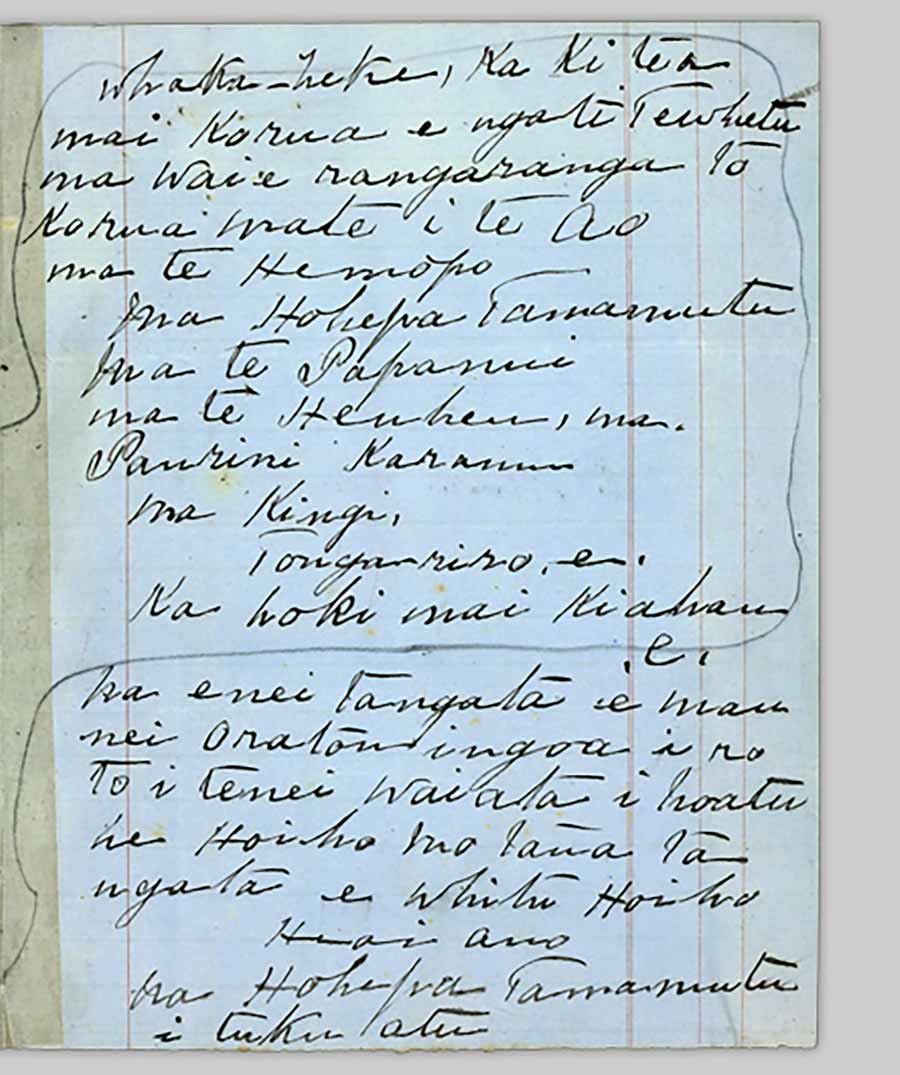 whaka-heke, Ka Ki tea
mai Korua e ngati Tewhetu
ma wai e rangaranga to
Korua mate i te Ao
ma te Hemopo
Ma Hohepa Tamamutu
Ma te Papanui
ma te Heuheu, ma.
Paurini Karamu
ma Kingi,
Tonga-riro, e.
Ka hoki mai Ki ahau
. e.
ka enei tangata e mau
nei Oratou ingoa i ro
to i tenei waiata i hoatu
he Hoiho mo taua ta
ngata e whitu Hoiho
ano
na Hohepa Tamamutu
i tuku atu